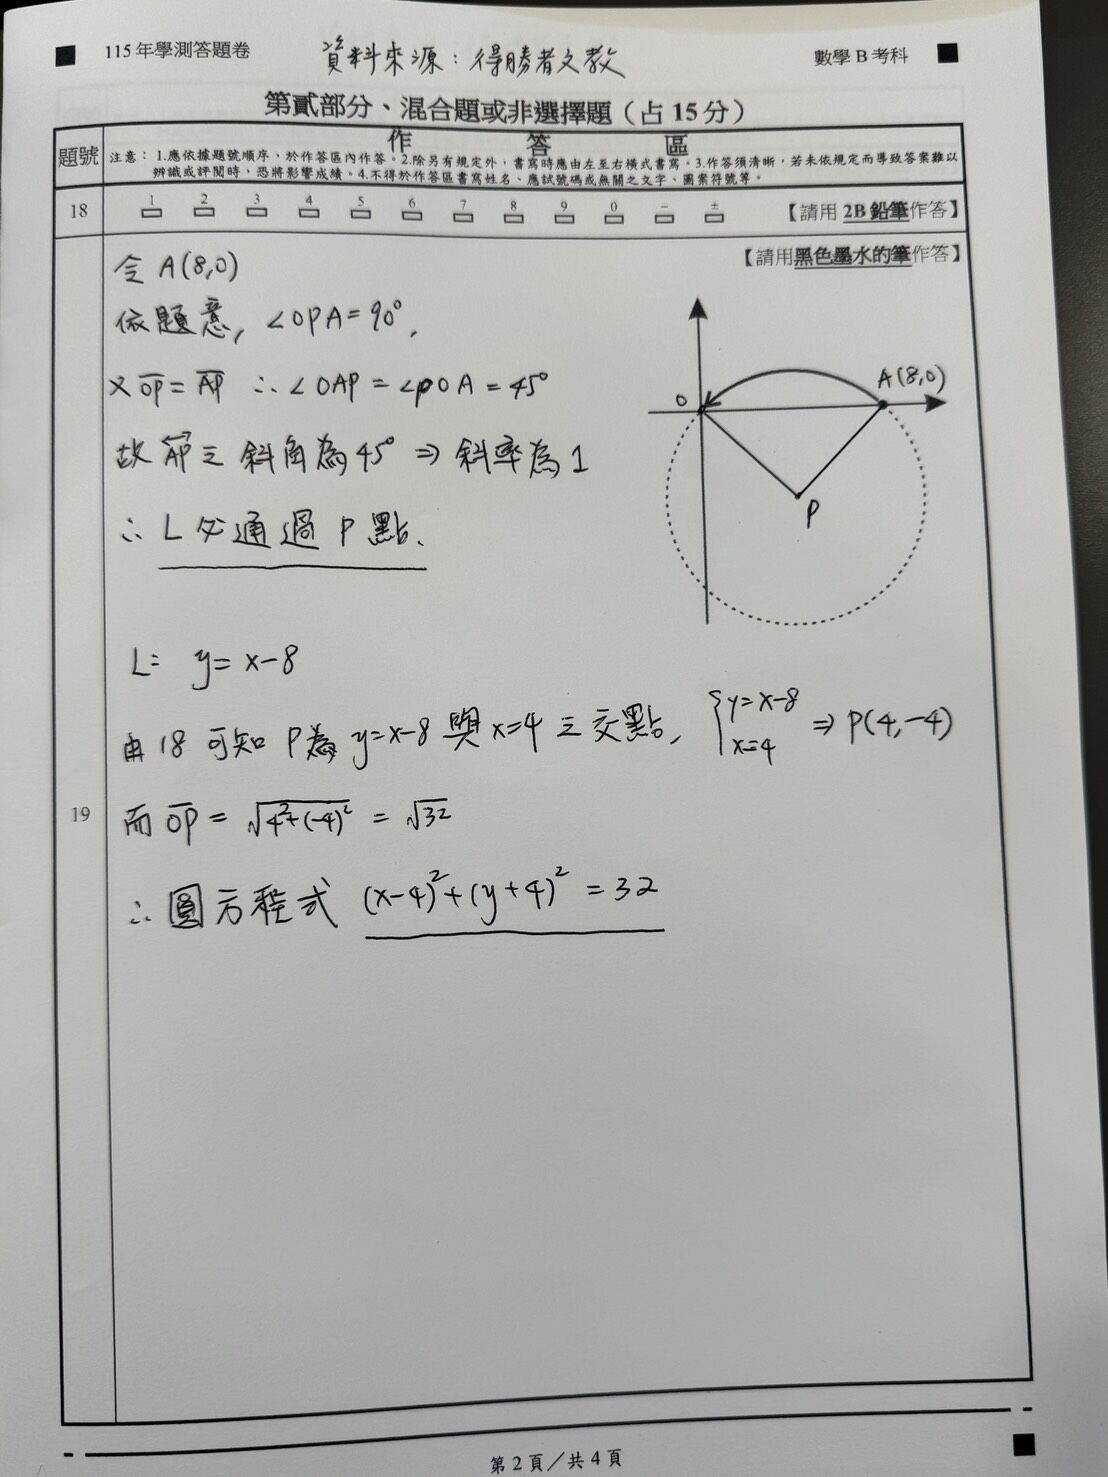 115年學測答題卷
資料來源：得勝者文教
數學B考科
第貳部分、混合題或非選擇題（占15分）
題號
作 答 區
注意：1.應依據題號順序，於作答區內作答。2.除另有規定外，書寫時應由左至右橫式書寫。3.作答須清晰，若未依規定而導致答案難以
辨識或評閱時，恐將影響成績。4.不得於作答區書寫姓名、應試號碼或無關之文字、圖案符號等。
18
1 2 3 4 5 6 7 8 9 0 − ±
【請用2B鉛筆作答】
【請用黑色墨水的筆作答】
令 A(8,0)
依題意, ∠OPA=90°,
又 O̅P̅ = A̅P̅ ∴ ∠OAP = ∠POA = 45°
故 AP 之 斜角為45° ⇒ 斜率為1
∴ L 必通過 P 點.
O
A(8,0)
P
19
L: y=x-8
由18可知 P為 y=x-8 與 x=4 之交點, {y=x-8
x=4 ⇒ P(4,-4)
而 O̅P̅ = √4²+(-4)² = √32
∴ 圓方程式 (x-4)²+(y+4)² = 32
第2頁／共4頁